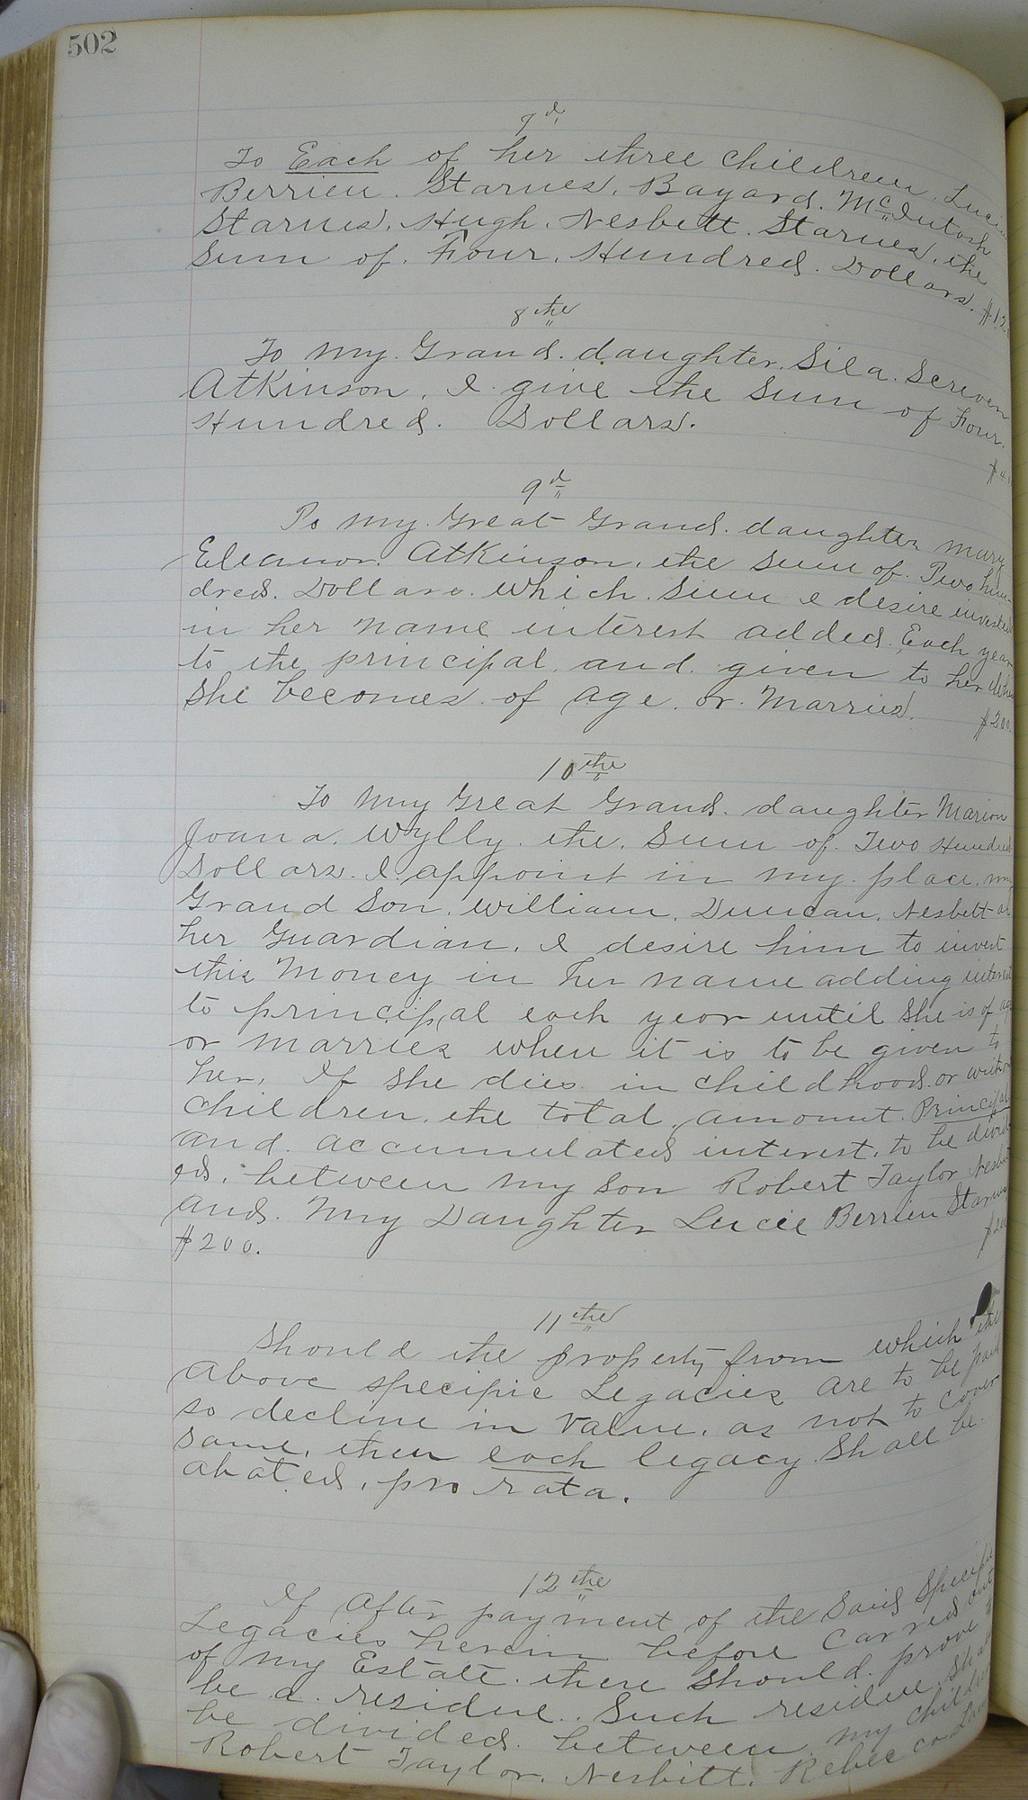 502
7d
To Each of her three children, Lucie
Berrien. Starnes, Bayard. McIntosh
Starnes, Hugh. Nesbett. Starnes, the
Sum of. Four. Hundred. Dollars.
8the
To my. Grand. daughter. Sila. Screven
Atkinson. I. give the Sum of Four.
Hundred. Dollars.
9d
To my. Great Grand. daughter Mary
Eleanor. Atkinson. the Sum of. Two hun-
dred. Dollars. which. Sum I desire invested
in her name interest added. Each year
to the principal. and. given to her when
she becomes. of age. or. Married.
$200.
10the
To My Great Grand. daughter Marion
Joana. Wylly. the. Sum of. Two Hundred
Dollars. I. appoint in my. place. my
Grand Son. William. Duncan. Nesbett as
her Guardian. I desire him to invest
this Money in her name adding interest
to principal each year until she is of age
or marries when it is to be given to
her. If she dies in childhood. or without
children. the total. amount. Principal
and. accumulated interest. to be divid-
ed. between my Son Robert Taylor Nesbitt
and. My Daughter Lucie Berrien Starnes
$200.
11the
Should the property from which the
above specific Legacies are to be paid
so decline in value. as not to cover
same. then each legacy. Shall be.
abated. pro rata.
12the
If after payment of the Said Specific
Legacies herein before Carried out
of my Estate. there should. prove to
be a. residue. Such residue Shall
be divided. between. my children
Robert Taylor. Nesbitt. Rebecca